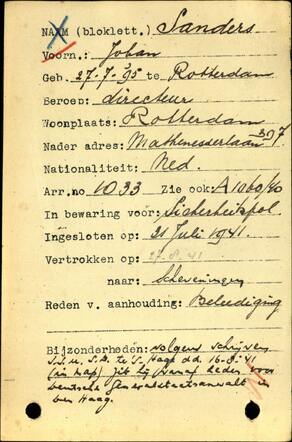 NAAM (bloklett.) Sanders
Voorn.: Johan
Geb. 27-7-'95 te Rotterdam
Beroep: directeur
Woonplaats: Rotterdam
Nader adres: Mathenesserlaan 317
Nationaliteit: Ned.
Arr.no 1033 Zie ook: A 1060/40
In bewaring voor: Sicherheitspol.
Ingesloten op: 21 Juli 1941.
Vertrokken op: 27.8.41
naar: Scheveningen
Reden v. aanhouding: Beleediging
Bijzonderheden: volgens schrijven
S.i.u. S.D. te 's Haage dd. 16-8-'41
(in map) zit hij vanaf heden voor
Deutsche Generalstaatsanwalt in
Den Haag.